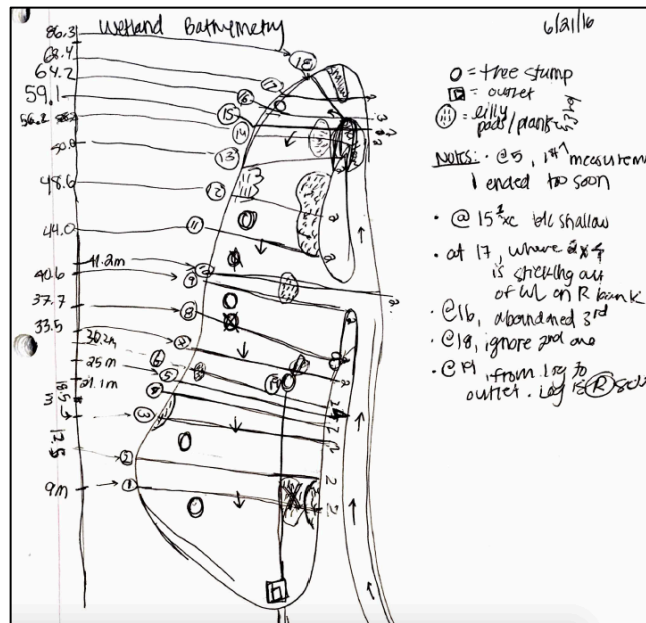 Wetland Bathymetry
6/21/16
86.3
68.4
64.2
59.1
56.2
50.9
48.6
44.0
41.2m
40.6
37.7
33.5
30.2m
25m
21.1m
18.5
m
13.5
9m
18
17
16
15
14
13
12
11
9
8
7
6
5
4
3
2
1
19
= tree stump
= outlet
= lilly
pads/plants
Notes: · @5, 1st measurem
ended too soon
· @ 15 2xc b/c shallow
· at 17, where 2x4
is sticking out
of WL on R bank
· @16, abandoned 3rd
· @18, ignore 2nd one
· @19, from log to
outlet. Log is R side